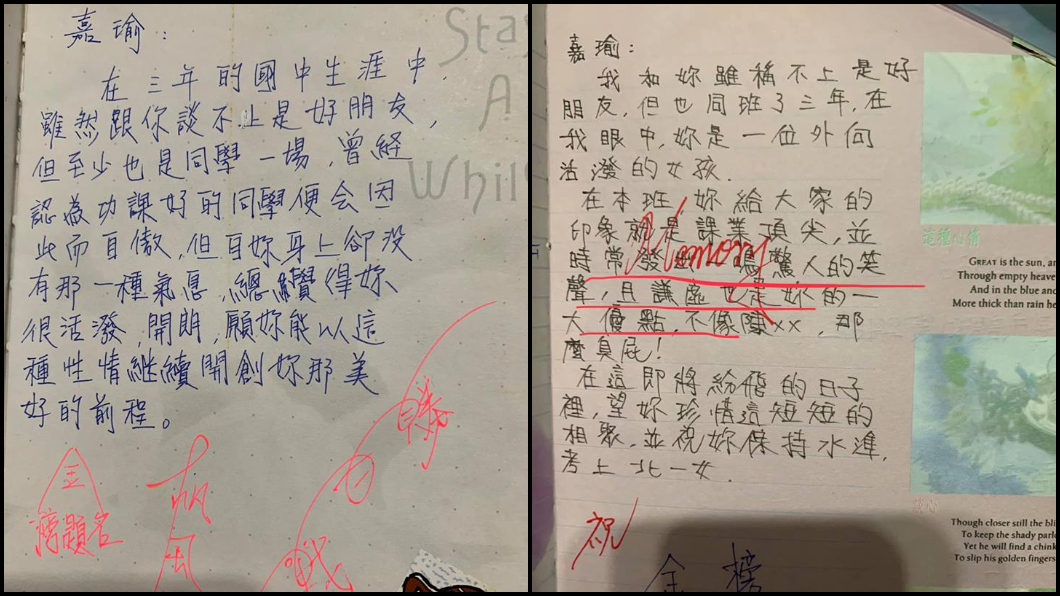 嘉瑜:
在三年的國中生涯中,
雖然跟你談不上是好朋友,
但至少也是同學一場,曾經
認為功課好的同學便會因
此而自傲,但自妳身上卻没
有那一種氣息,總覺得妳
很活潑,開朗,願妳能以這
種性情繼續開創妳那美
好的前程。
金
榜題名
帆
風
Stay
A
Whil
嘉瑜:
我和妳雖稱不上是好
朋友,但也同班了三年,在
我眼中,妳是一位外向
活潑的女孩.
在本班,妳給大家的
印象就是課業頂尖,並
時常發出一鳴驚人的笑
聲,且謙虛也是妳的一
大優點,不像陳xx,那
麼臭屁!
在這即將紛飛的日子
裡,望妳珍惜這短短的
相聚,並祝妳保持水準,
考上北一女.
Memory
祝
金榜
GREAT is the sun, an
Through empty heave
And in the blue and
More thick than rain he
Though closer still the bli
To keep the shady parl
Yet he will find a chink
To slip his golden fingers